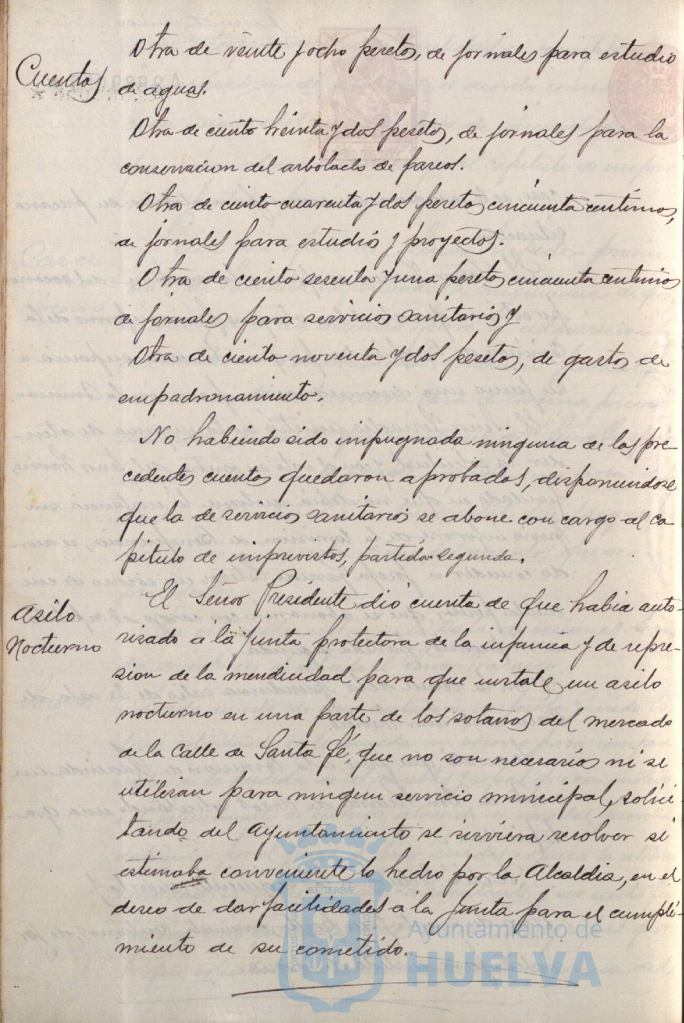 Cuentas
Otra de veinte y ocho pesetas, de jornales para estudio
de aguas.
Otra de ciento treinta y dos pesetas, de jornales para la
conservacion del arbolado de paseos.
Otra de ciento cuarenta y dos pesetas cincuenta centimos,
de jornales para estudios y proyectos.
Otra de ciento sesenta y una pesetas cincuenta centimos
de jornales para servicios sanitarios y
Otra de ciento noventa y dos pesetas, de gastos de
empadronamiento.
No habiendo sido impugnada ninguna de las pre-
cedentes cuentas quedaron aprobadas, disponiendose
que la de servicios sanitarios se abone con cargo al ca-
pitulo de imprevistos, partida segunda.
Asilo
Nocturno
El Señor Presidente dió cuenta de que habia auto-
rizado á la Junta protectora de la infancia y de repre-
sion de la mendicidad para que instale un asilo
nocturno en una parte de los sotanos del mercado
de la Calle de Santa Fé, que no son necesarios ni se
utilizan para ningun servicio municipal, solici-
tando del Ayuntamiento se sirviera resolver si
estimaba conveniente lo hecho por la Alcaldia, en el
deseo de dar facilidades á la Junta para el cumpli-
miento de su cometido.
Ayuntamiento de
HUELVA